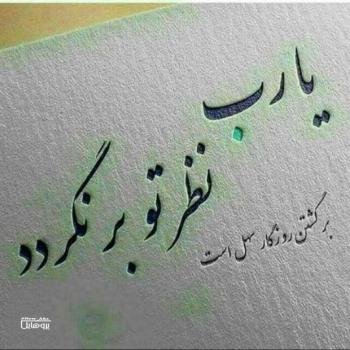 یا رب
نظر تو بر نگردد
برگشتن روزگار سهل است